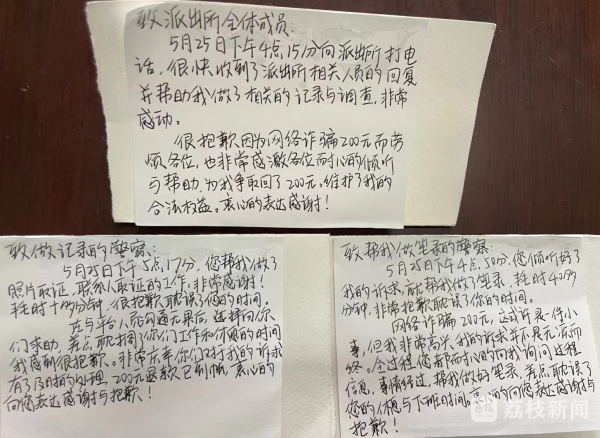 致派出所全体成员:
5月25日下午4点15分向派出所打电
话,很快收到了派出所相关人员的回复
并帮助我做了相关的记录与调查,非常
感动。
很抱歉因为网络诈骗200元而劳
烦各位,也非常感激各位耐心的倾听
与帮助,为我争取回了200元,维护了我的
合法权益。衷心的表达感谢!
致做记录的警察:
5月25日下午5点17分,您帮我做了
照片取证,联系人取证的工作,非常感谢!
耗时十多分钟,很抱歉耽误了您的时间。
在与当人沟通无果后,选择向你
们求助,差点耽搁了你们工作和休息的时间
我感到很抱歉。非常庆幸你们对于我的诉求
有了及时的处理,200元退款已到帐,衷心的
向您表达感谢与抱歉!
致帮我做笔录的警察:
5月25日下午4点50分,您倾听好了
我的诉求,就帮我做了笔录,耗时40多分
分钟,非常抱歉耽误了您的时间。
网络诈骗200元,这或许是一件小
事,但我非常高兴,我的诉求并不是无疾而
终。全过程您都耐心的向我询问过程
信息,事情经过,帮我做好笔录,差点耽误了
您的休憩与下班时间。衷心的向您表达感谢与
抱歉!
荔枝新闻